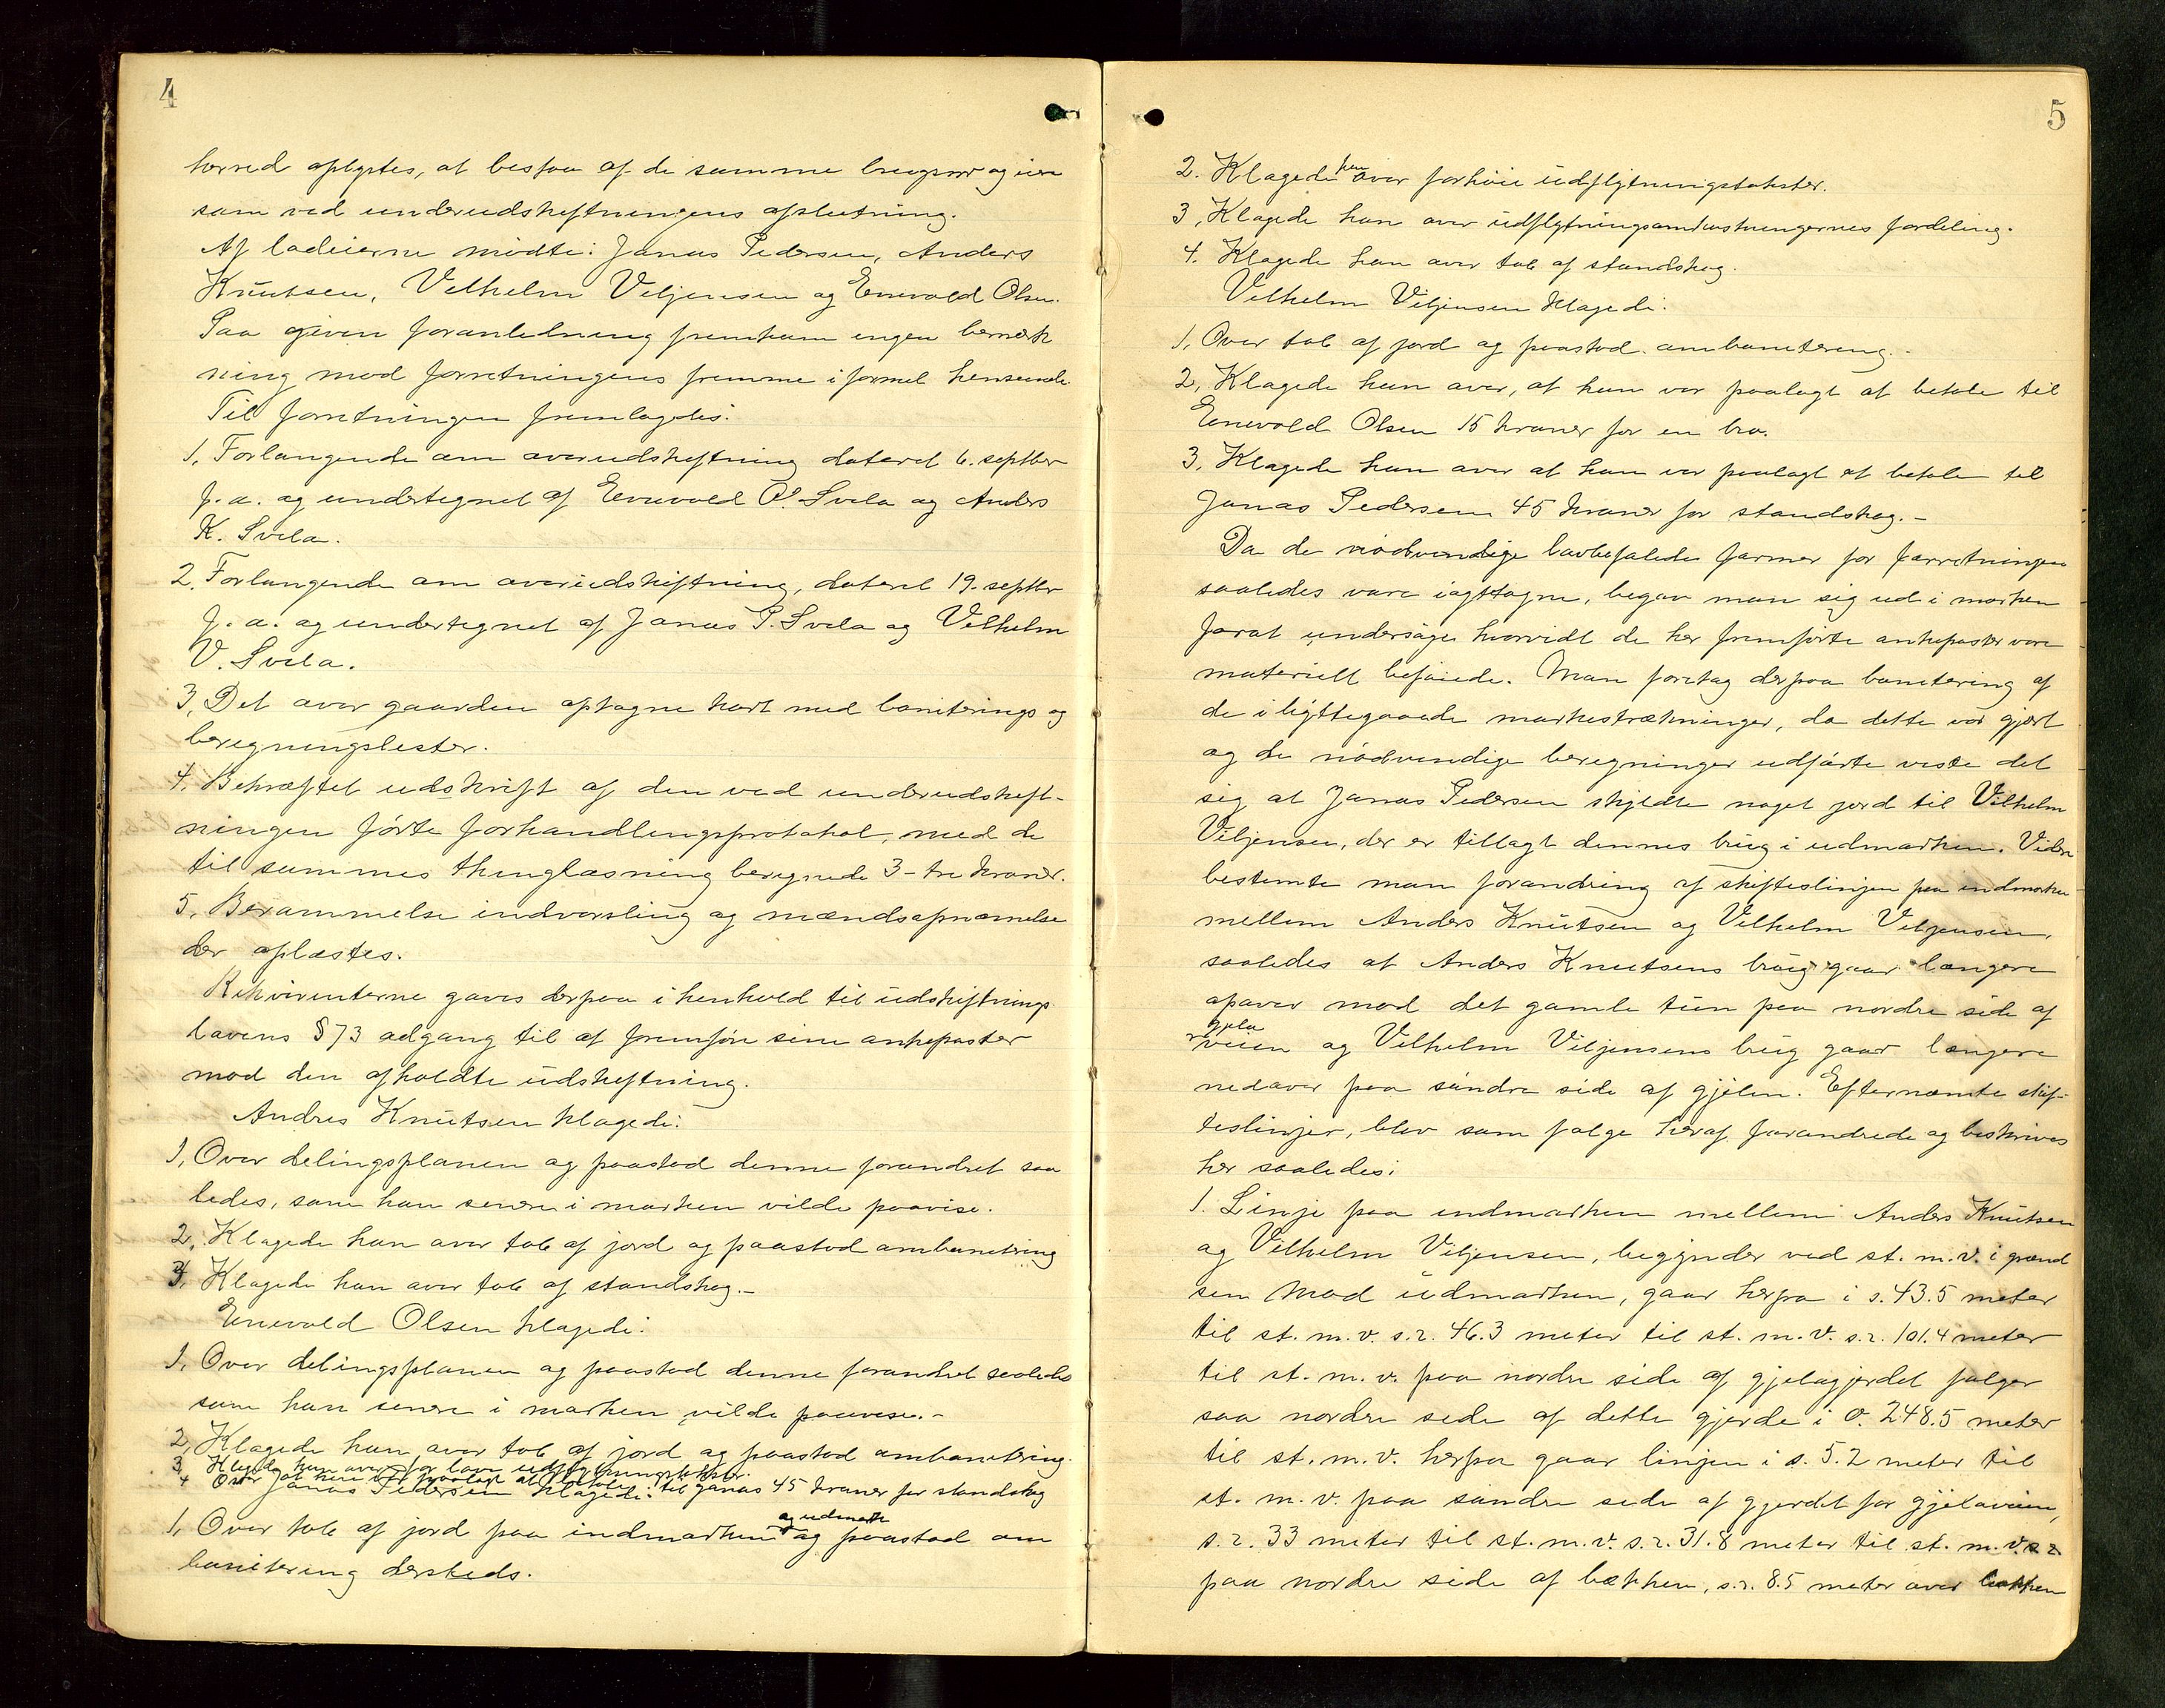 4
herred oplystes, at bestaa af de samme brugere og eiere
som ved underudskiftningens afslutning.
Af lodeierne mødte: Jonas Pedersen, Anders
Knutsen, Velhelm Veljensen og Enevold Olsen.
Paa given foranledning fremkom ingen bemærk
ning mod forretningens fremme i formel henseende.
Til forretningen fremlagdes:
1, Forlangende om overudskiftning dateret 6. septber
f. a. og undertegnet af Enevold O. Svela og Anders
K. Svela.
2. Forlangende om overudskiftning, dateret 19. septbr
f. a. og undertegnet af Jonas P. Svela og Velhelm
V. Svela.
3, Det over gaarden optagne kart med boniterings og
beregningslister.
4, Bekræftet udskrift af den ved underudskift-
ningen førte forhandlingsprotokol, med de
til sammes thinglæsning beregnede 3 - tre kroner.
5, Berammelse indvarsling og mændsopnævnelse
der oplæstes.
Rekvirenterne gaves derpaa i henhold til udskiftnings
lovens § 73 adgang til at fremføre sine ankeposter
mod den afholdte udskiftning.
Andres Knutsen klagede:
1, Over delingsplanen og paastod denne forandret saa
ledes, som han senere i marken vilde paavise.
2, Klagede han over tab af jord og paastod ombonitering
3, Klagede han over tab af standskog.-
Enevold Olsen klagede:
1, Over delingsplanen og paastod denne forandret saaledes
som han senere i marken vilde paavise.-
2, Klagede han over tab af jord og paastod ombonitering.
3, Klagede han over for lave udflytningstakster.
4 Over at han var paalagt at betale til Jonas 45 kroner for standskog
Jonas Pedersen klagede:
1, Over tab af jord paa indmarken og udmark og paastod om
bonitering dersteds.
5
2. Klagede han over forhøie udflytningstakster.
3, Klagede han over udflytningsomkostningernes fordeling.
4. Klagede han over tab af standskog.
Velhelm Viljensen klagede:
1, Over tab af jord og paastod ombonitering.-
2, Klagede han over, at han var paalagt at betale til
Enevold Olsen 15 kroner for en bro.
3, Klagede han over at han var paalagt at betale til
Jonas Pedersen 45 kroner for standskog.-
Da de nødvendige lovbefalede former for forretningen
saaledes vare iagttagne, begav man sig ud i marken
forat undersøge hvorvidt de her fremførte ankeposter vare
materielt beføiede. Man foretog derpaa bonitering af
de i byttegaaede markestrækninger, da dette var gjort
og de nødvendige beregninger udførte viste det
sig at Jonas Pedersen skyldte noget jord til Vilhelm
Viljensen, der er tillagt dennes brug i udmarken. Videre
bestemte man forandring af skifteslinjen paa indmarken
mellem Anders Knutsen og Velhelm Veljensen,
saaledes at Anders Knutsens brug gaar længere
opover mod det gamle tun paa nordre side af
gjela
veien og Velhelm Viljensens brug gaar længere
nedover paa søndre side af gjelen. Efternævnte skif-
teslinjer, blev som følge heraf forandrede og beskrives
her saaledes:
1. Linje paa indmarken mellem Anders Knutsen
og Vilhelm Viljensen, begynder ved st. m. v. i grænd
sen mod udmarken, gaar herpa i s. 43.5 meter
til st. m. v. s. r. 46.3 meter til st. m. v. s. r. 101.4 meter
til st. m. v. paa nordre side af gjelagjerdet følger
saa nordre side af dette gjerde i o. 248.5 meter
til st. m. v. herpaa gaar linjen i s. 5.2 meter til
st. m. v. paa søndre side af gjerdet for gjelaveien,
s. r. 33 meter til st. m. v. s. r. 31.8 meter til st. m. v. s. r.
paa nordre side af bækken, s. r. 8.5 meter over bækken